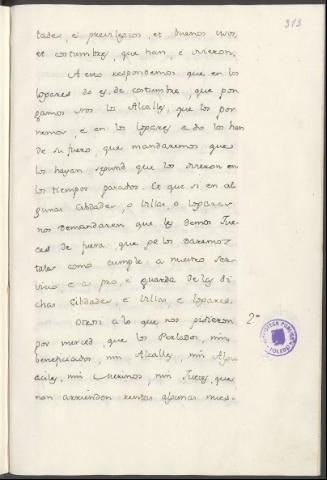 313
tades, é previlegios, et buenos usos,
et costumbres, que han, é ovieron.
A esto respondemos que en los
logares do es de costumbre, que pon
gamos nos los Alcalles, que los por
nemos, é en los logares é do los han
de su fuero, que mandaremos que
los hayan segund que los ovieron en
los tiempos pasados. É que si en al
gunas Cibdades, o Villas, o logares
nos demandaren que les demos Jue
ces de fuera, que ge los daremos
tales como cumple a nuestro ser
vicio, é a pro, é guarda de las di
chas Cibdades, é Villas, é logares.
Otrosi a lo que nos pidieron
2ª
por merced, que los Perlados, nin
beneficiados, nin Alcalles, nin Algu
aciles, nin Merinos, nin Jueces, que
non arrienden rentas algunas nues-
BIBLIOTECA PUBLICA
TOLEDO